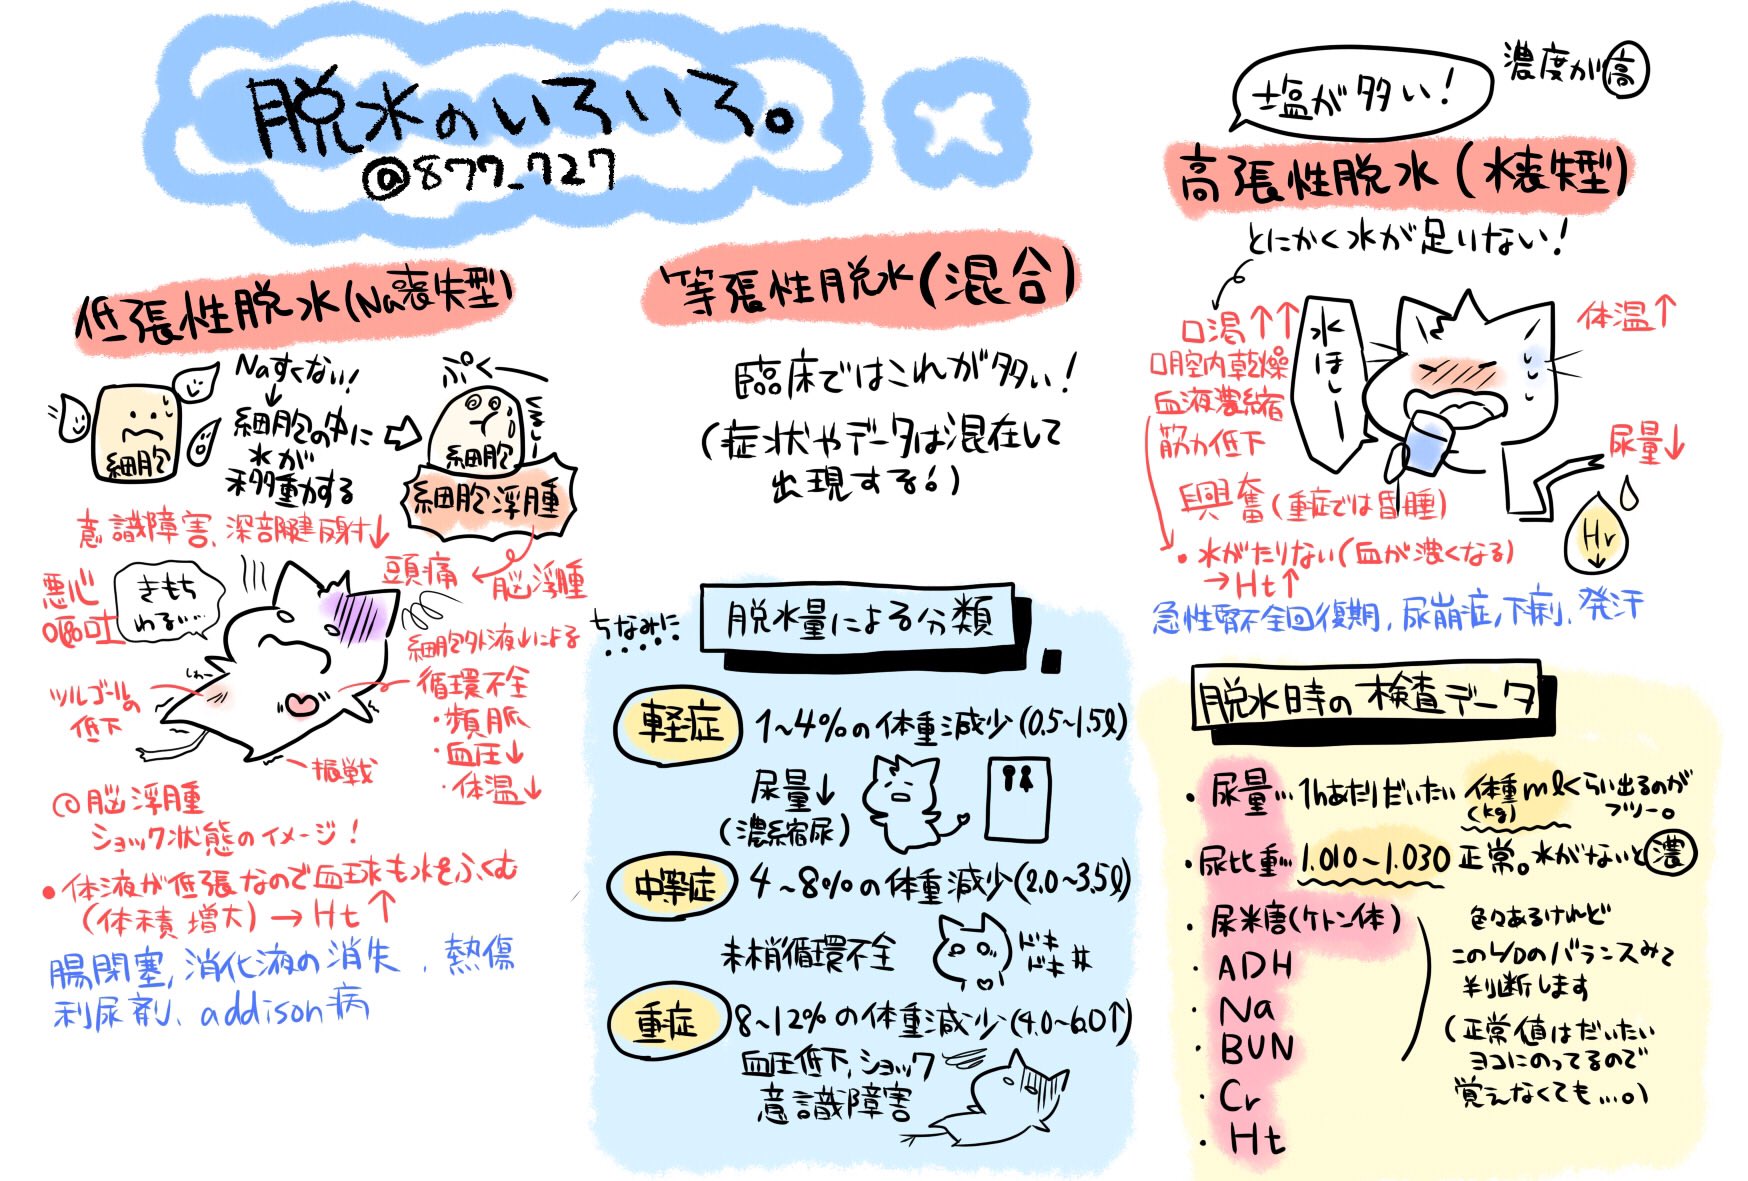 脱水のいろいろ。
@877_727
低張性脱水(Na喪失型)
Naすくない!
細胞の中に
水が
移動する
細胞
ぷくー
細胞
細胞浮腫
意識障害、深部腱反射↓
頭痛
脳浮腫
悪心
嘔吐
きもち
わる…
ツルゴールの
低下
しわー
細胞外液↓による
循環不全
・頻脈
・血圧↓
・体温↓
振戦
◎脳浮腫
ショック状態のイメージ!
・体液が低張なので血球も水をふくむ
(体積増大)→Ht↑
腸閉塞,消化液の消失、熱傷
利尿剤、addison病
等張性脱水(混合)
臨床ではこれが多い!
(症状やデータは混在して
出現する。)
ちなみに
脱水量による分類
軽症
1~4%の体重減少(0.5~1.5ℓ)
尿量↓
(濃縮尿)
中等症
4~8%の体重減少(2.0~3.5ℓ)
末梢循環不全
ドキ
ドキ
重症
8~12%の体重減少(4.0~6.0↑)
血圧低下、ショック
意識障害
塩が多い!
濃度が高
高張性脱水(水喪失型)
とにかく水が足りない!
口渇↑↑
口腔内乾燥
血液濃縮
筋力低下
興奮(重症では昏睡)
水ほしー
体温↑
尿量↓
Hr
↓
・水がたりない(血が濃くなる)
→Ht↑
急性腎不全回復期,尿崩症,下痢、発汗
脱水時の検査データ
・尿量…1hあたりだいたい体重mℓくらい出るのが
(kg)
フツー。
・尿比重…1.010~1.030正常。水がないと濃
・尿糖(ケトン体)
・ADH
・Na
・BUN
・Cr
・Ht
色々あるけれど
このI/Oのバランスみて
判断します
(正常値はだいたい
ヨコにのってるので
覚えなくても…。)